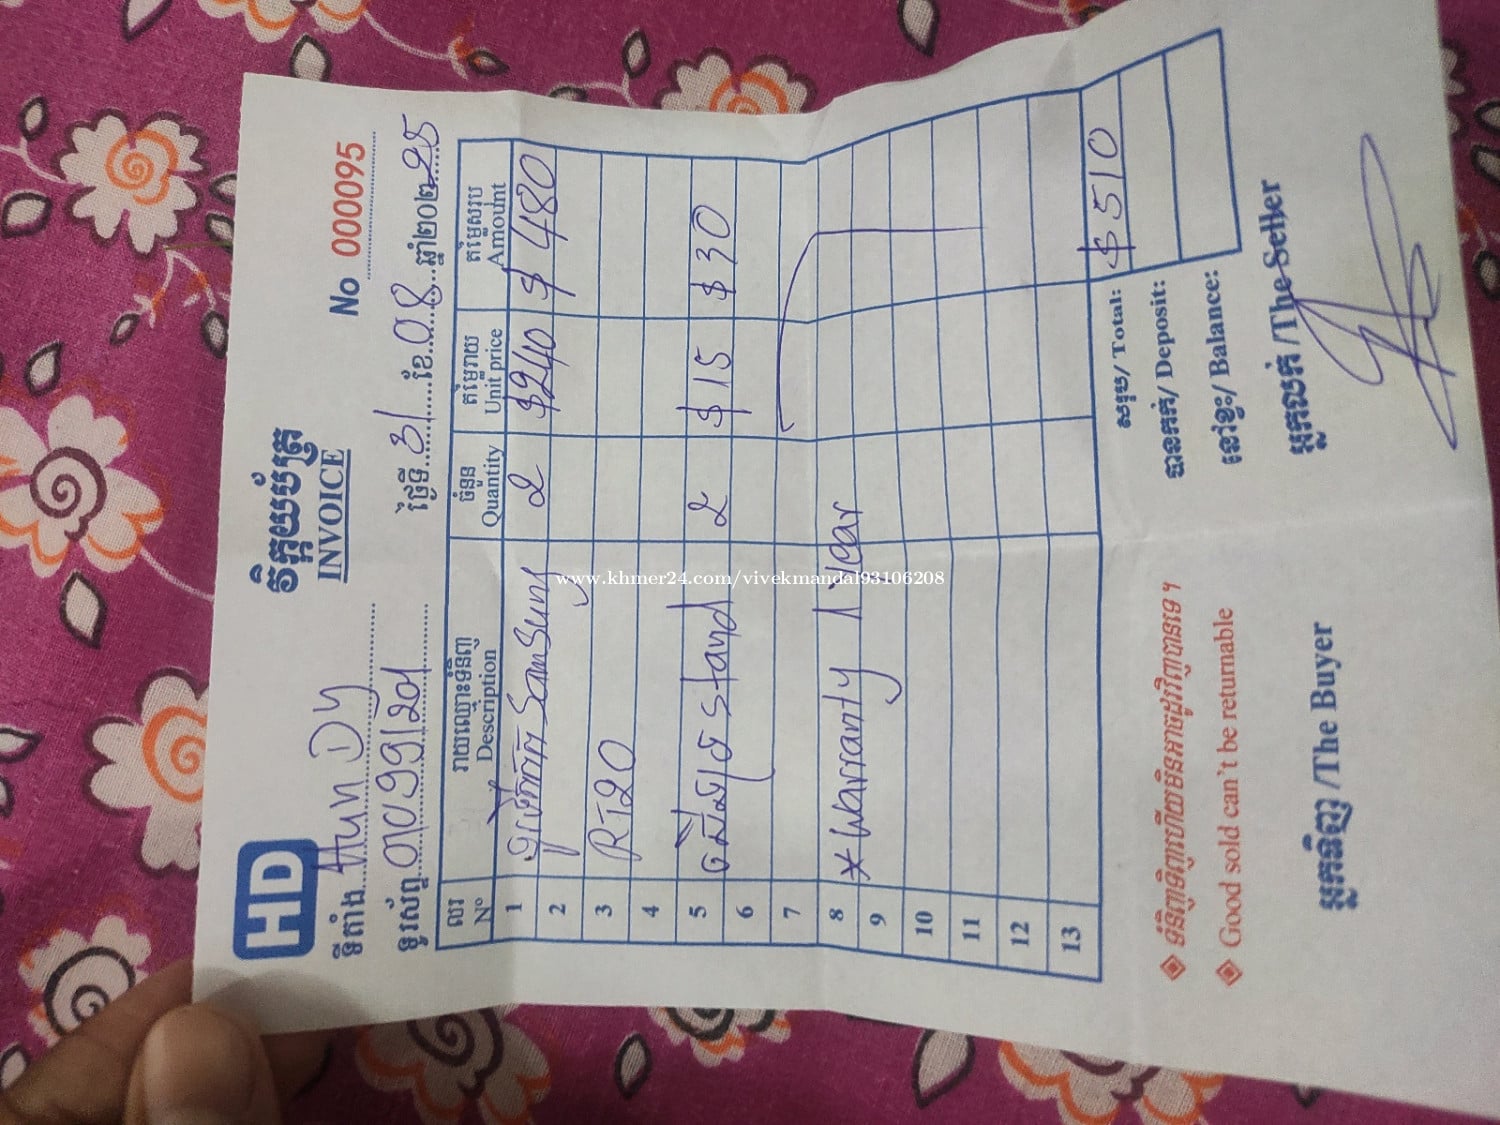 HD
វិក្កយបត្រ
INVOICE
No 000095
ទីតាំង Hun Dy
ទូរស័ព្ទ
ថ្ងៃទី 31 ខែ 08 ឆ្នាំ២០២ 25
ល.រ រាយឈ្មោះទំនិញ ចំនួន តម្លៃរាយ តម្លៃសរុប
Nº Description Quantity Unit price Amount
1 Samsung 2 $240 $480
2
3
4
5 stand 2 $15 $30
6
7
8 * Warranty 1 Year
9
10
11
12
13
សរុប/ Total: $510
បានកក់/ Deposit:
នៅខ្វះ/ Balance:
ទំនិញទិញហើយមិនអាចដូរវិញបានទេ ។
Good sold can't be returnable
អ្នកទិញ /The Buyer
អ្នកលក់ /The Seller
www.khmer24.com/vivekmandal93106208